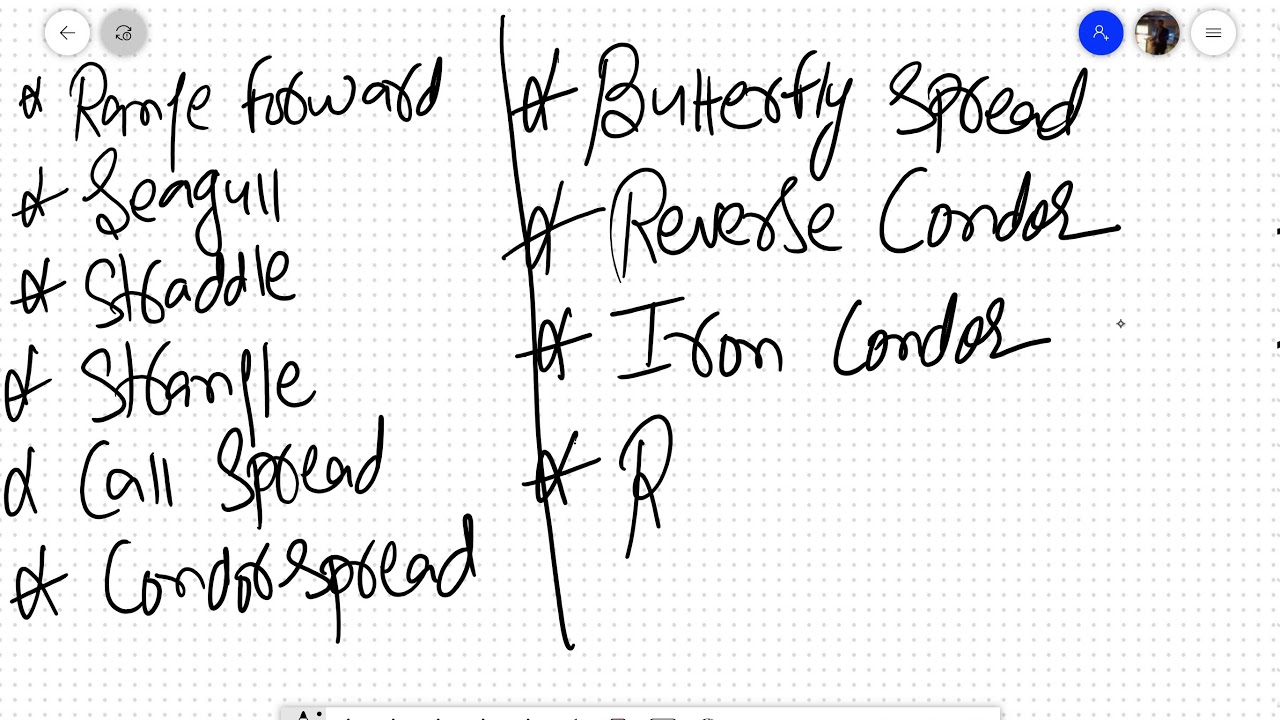 * Range forward
* Seagull
* Straddle
* Strangle
* Call Spread
* Condor Spread
* Butterfly Spread
* Reverse Condor
* Iron Condor
* R